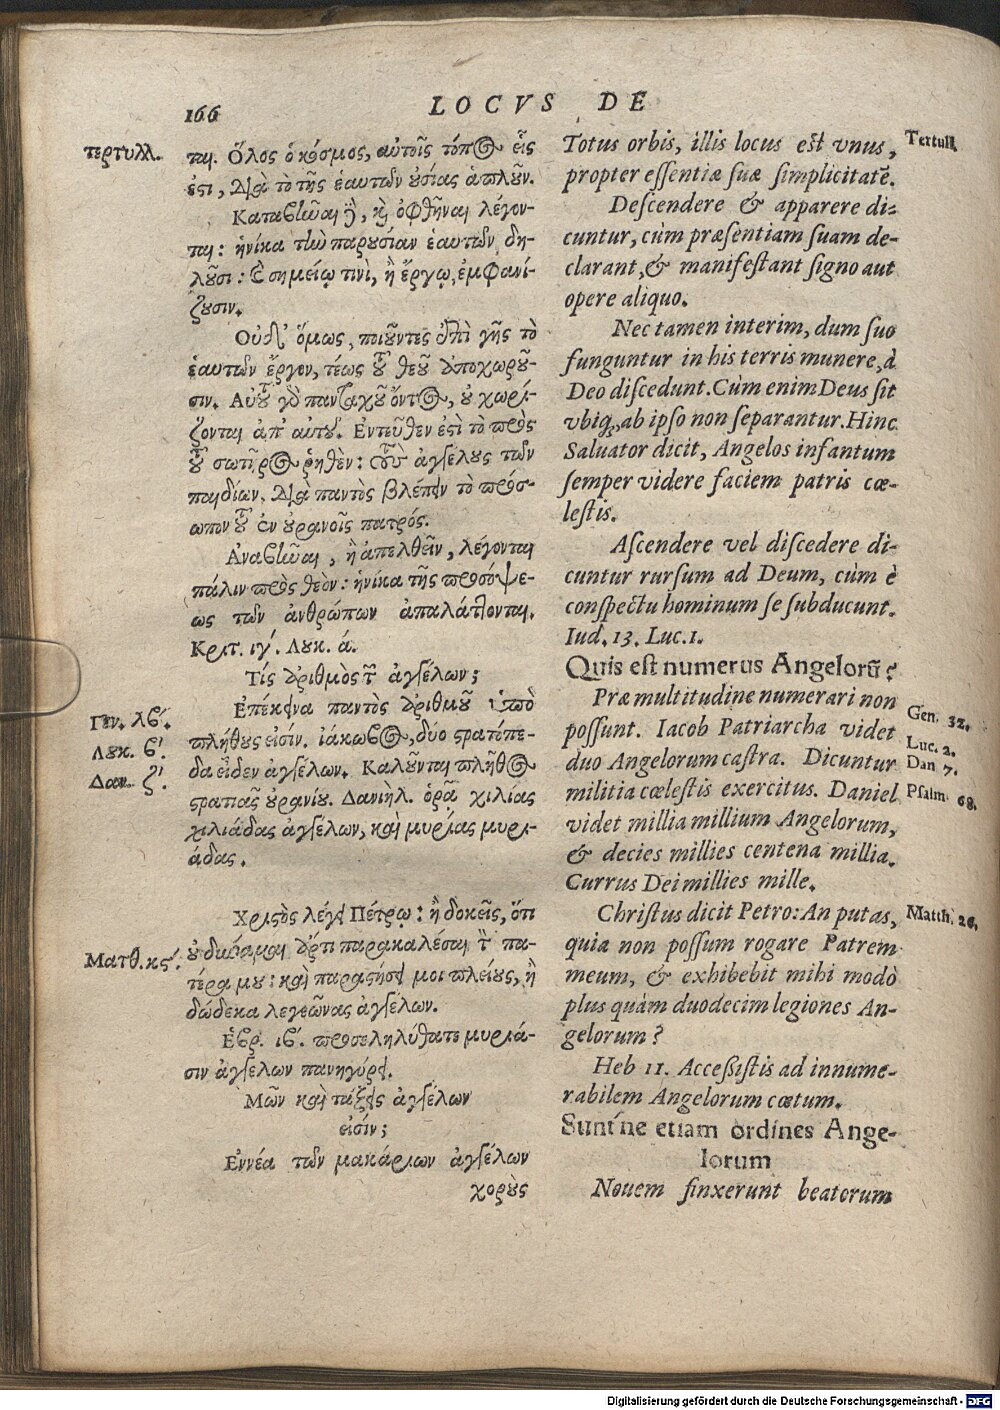 166
LOCVS DE
τερτυλλ.
ται. Ὅλος ὁ κόσμος, αὐτοῖς τόπος εἷς
ἐστι, διὰ τὸ τῆς ἑαυτῶν οὐσίας ἁπλοῦν.
Καταβῶαι ἢ, καὶ ὀφθῆναι λέγον-
ται: ἡνίκα τὼ παρουσίαν ἑαυτῶν δη-
λοῦσι: καὶ σημείῳ τινὶ, ἢ ἔργῳ, ἐμφανί-
ζουσιν.
Οὐδ' ὅμως, ποιοῦντες ἐπὶ γῆς τὸ
ἑαυτῶν ἔργον, τέως τοῦ θεοῦ ἀποχωροῦ-
σιν. Αὐτοῦ γὸ πανταχοῦ ὄντος, οὐ χωρί-
ζονται ἀπ' αὐτοῦ. Ἐντεῦθεν ἐστὶ τὸ πρὸς
τοῦ σωτῆρος ῥηθὲν: τοὺς ἀγγέλους τῶν
παιδίων, διὰ παντὸς βλέπειν τὸ πρόσ-
ωπον τοῦ ἐν οὐρανοῖς πατρός.
Ἀναβῶαι, ἢ ἀπελθεῖν, λέγονται
πάλιν πρὸς θεὸν: ἡνίκα τῆς προσόψε-
ως τῶν ἀνθρώπων ἀπαλάττονται.
Κριτ. ιγ'. Λουκ. ά.
Τίς ἀριθμὸς τῶν ἀγγέλων;
Γεν. λβ'.
Λουκ. β'.
Δαν. ζ'.
Ἐπέκεινα παντὸς ἀριθμοῦ ὑπὸ
πλήθους εἰσίν. ἰάκωβος, δύο στρατόπε-
δα εἶδεν ἀγγέλων. Καλοῦνται πλῆθος
στρατιᾶς οὐρανίου. Δανιὴλ. ὁρᾷ χιλίας
χιλιάδας ἀγγέλων, καὶ μυρίας μυρι-
άδας.
Ματθ. κϛ'.
Χριστὸς λέγει Πέτρῳ: ἢ δοκεῖς, ὅτι
οὐ δύναμαι ἄρτι παρακαλέσαι τὸν πα-
τέρα μου: καὶ παραστήσει μοι πλείους, ἢ
δώδεκα λεγεῶνας ἀγγέλων.
Ἑβρ. ιβ'. προσεληλύθατε μυριά-
σιν ἀγγέλων πανηγύρει.
Μῶν καὶ τάξεις ἀγγέλων
εἰσίν;
Ἐννέα τῶν μακάριων ἀγγέλων
χοροὺς
Totus orbis, illis locus est vnus,
propter essentiæ suæ simplicitatẽ.
Descendere & apparere di-
cuntur, cùm præsentiam suam de-
clarant, & manifestant signo aut
opere aliquo.
Nec tamen interim, dum suo
funguntur in his terris munere, à
Deo discedunt. Cùm enim Deus sit
vbiq;, ab ipso non separantur. Hinc
Saluator dicit, Angelos infantum
semper videre faciem patris cœ-
lestis.
Ascendere vel discedere di-
cuntur rursum ad Deum, cùm è
conspectu hominum se subducunt.
Iud. 13. Luc. 1.
Quis est numerus Angelorũ?
Præ multitudine numerari non
possunt. Iacob Patriarcha videt
duo Angelorum castra. Dicuntur
militia cœlestis exercitus. Daniel
videt millia millium Angelorum,
& decies millies centena millia.
Currus Dei millies mille.
Christus dicit Petro: An putas,
quia non possum rogare Patrem
meum, & exhibebit mihi modò
plus quàm duodecim legiones An-
gelorum?
Heb 11. Accessistis ad innume-
rabilem Angelorum cœtum.
Sunt ne etiam ordines Ange-
lorum
Nouem finxerunt beatorum
Tertull.
Gen. 32.
Luc. 2.
Dan 7.
Psalm. 68.
Matth. 26.
Digitalisierung gefördert durch die Deutsche Forschungsgemeinschaft - DFG